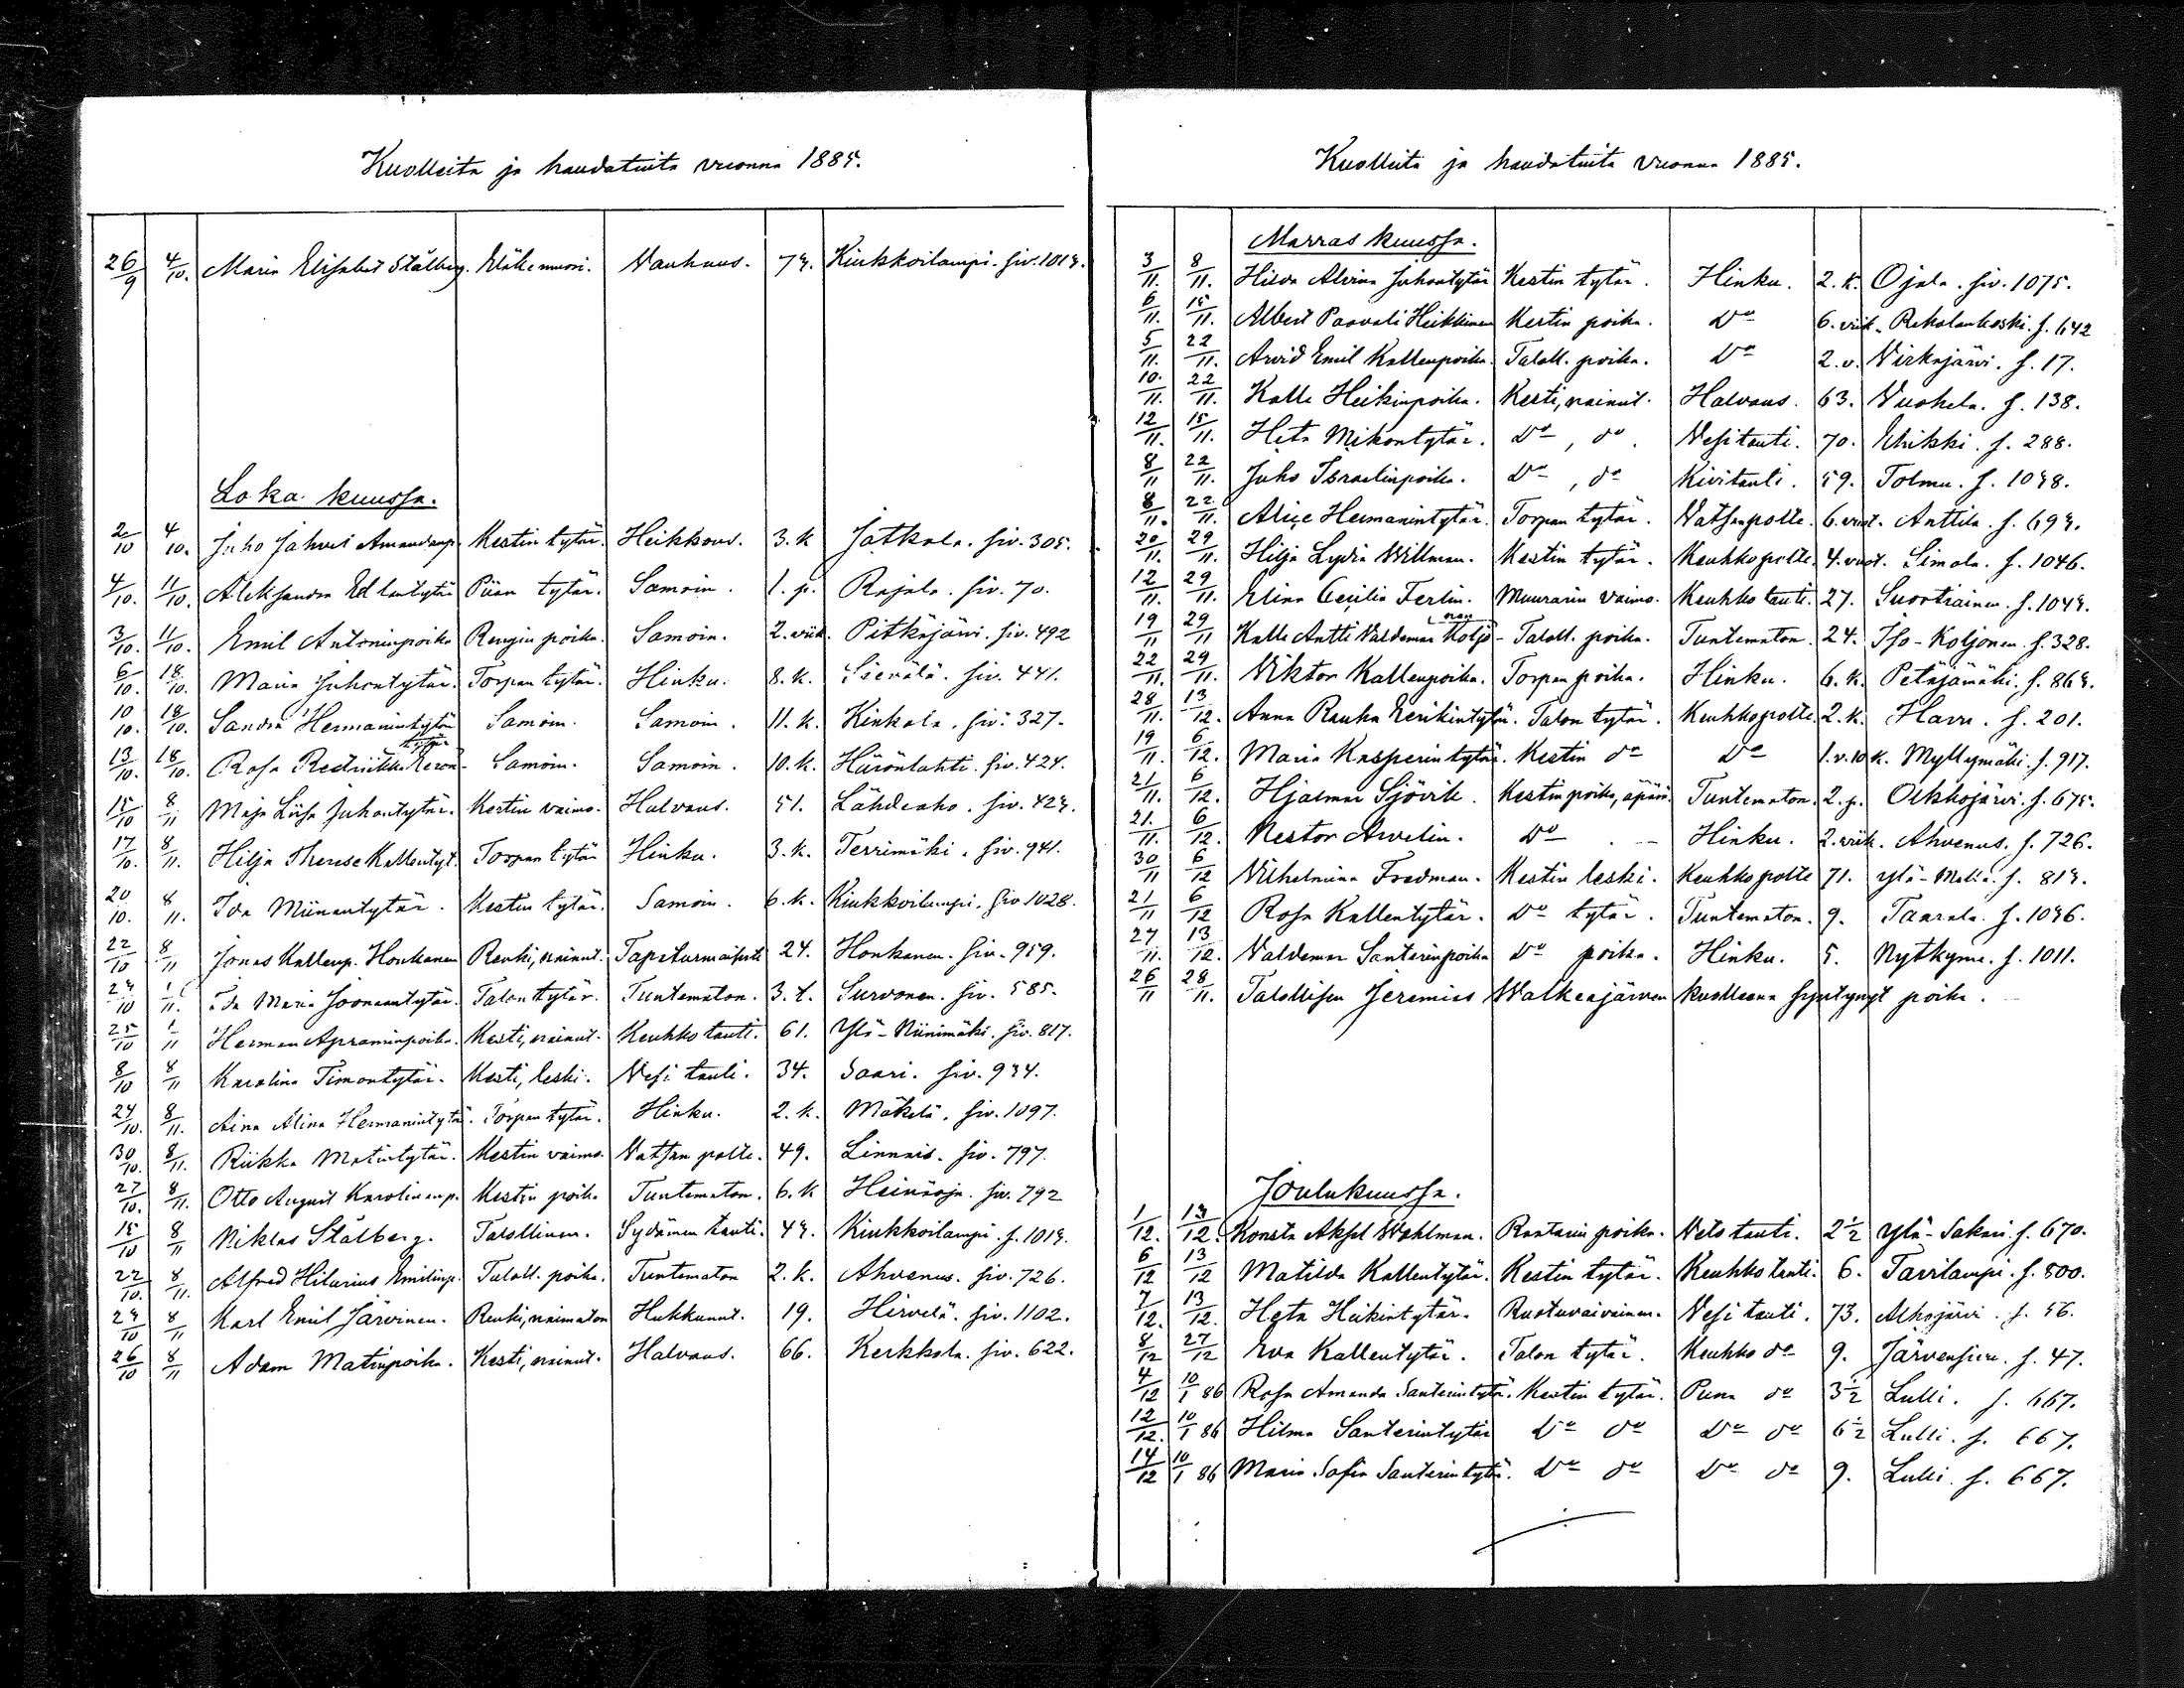 Kuolleita ja haudatuita vuonna 1885.
26/9 4/10. Maria Elisabet Stålberg. Eläkemuori. Vanhuus. 74. Kiukkoilampi. siv. 1019.
Lokakuussa.
2/10 4/10. Juho Jahvet Amandanp. Kestin tytär. Heikkous. 3. k Jatkola. siv. 305.
4/10. 11/10. Aleksandra Edlantytär Piian tytär. Samoin. 1. p. Rajala. siv. 70.
3/10. 11/10. Emil Antoninpoika Rengin poika. Samoin. 2. viik. Pitkäjärvi. siv. 492
6/10. 18/10. Maria Juhontytär. Torpan tytär. Hinku. 8. k. Sierälä. siv. 441.
10/10. 18/10. Sandra Hermanintytär Samoin. Samoin. 11. k. Kinkala. siv. 327.
13/10. 18/10. Rosa Redrikka Keron-tytär Samoin. Samoin. 10. k. Häränlahti. siv. 424.
15/10 8/11 Maja Liisa Juhontytär. Kestin vaimo. Halvaus. 51. Lähdeaho. siv. 424.
17/10. 8/11. Hilja Therese Kallentyt. Torpan tytär Hinku. 3. k. Terrimäki. siv. 941.
20/10. 8/11. Ida Miinantytär. Kestin tytär. Samoin. 6. k. Kiukkoilampi. siv. 1028.
22/10 8/11 Jonas Kallenp. Honkanen Renki, nainut. Tapaturmaisesti 24. Honkanen. siv. 959.
24/10 1/11. Ida Maria Joonaantytär. Talon tytär. Tuntematon. 3. t. Survonen. siv. 585.
25/10 1/11 Herman Apraminpoika. Kesti, nainut. Keuhko tauti. 61. Ylä-Niinimäki. siv. 817.
8/10 8/11 Karolina Timontytär. Kesti, leski. Vesi tauti. 34. Saari. siv. 934.
24/10. 8/11. Aina Alina Hermanintytär. Torpan tytär. Hinku. 2. k. Mäkelä. siv. 1097.
30/10. 8/11. Riikka Matintytär. Kestin vaimo. Vatsan polte. 49. Linnais. siv. 797.
27/10. 8/11. Otto August Karolinanp. Kestin poika Tuntematon. 6. k Heinäoja. siv. 792
15/10 8/11 Niklas Stålberg. Talollinen. Sydämen tauti. 44. Kiukkoilampi. s. 1019.
22/10. 8/11. Alfred Hilarius Emilinp. Taloll. poika. Tuntematon 2. k. Ahvenus. siv. 726.
24/10 8/11 Karl Emil Järvinen. Renki, naimaton Hukkunut. 19. Hirvelä. siv. 1102.
26/10 8/11 Adam Matinpoika. Kesti, nainut. Halvaus. 66. Kerkkola. siv. 622.
Kuolleita ja haudatuita vuonna 1885.
Marraskuussa.
3/11. 8/11. Hilda Alvina Juhontytär Kestin tytär. Hinku. 2. k. Ojala. siv. 1075.
6/11. 15/11. Albert Paavali Heikkinen Kestin poika. Do 6. viik. Rekolankoski. s. 642
5/11. 22/11. Arvid Emil Kallenpoika. Taloll. poika. Do 2. v. Virkajärvi. s. 17.
10./11. 22/11. Kalle Heikinpoika. Kesti, nainut. Halvaus. 63. Vuohela. s. 138.
12/11. 15/11. Heta Mikontytär. Do, do. Vesitauti. 70. Uhikki. s. 288.
8/11 22/11. Juho Israelinpoika. Do, do Kivitauti. 59. Tolmu. s. 1048.
8/11. 22./11. Alice Hermanintytär. Torpan tytär. Vatsanpolte. 6. vuot. Anttila. s. 694.
20/11. 29/11. Hilja Lydia Willman. Kestin tytär. Keuhkopolte. 4. vuot. Simola. s. 1046.
12/11. 29/11. Elina Cecilia Ferlin. Muurarin vaimo. Keuhko tauti. 27. Suortiainen. s. 1049.
19/11 29/11 Kalle Antti Valdemar Koljo-nen Taloll. poika. Tuntematon. 24. Iso-Koljonen. s. 328.
22/11. 29/11 Viktor Kallenpoika. Torpan poika. Hinku. 6. k. Petäjämäki. s. 864.
28/11. 13/12. Anna Rauha Eerikintytär. Talon tytär. Keuhkopolte 2. k. Havu. s. 201.
19/11. 6/12. Maria Kasperintytär. Kestin do Do 1. v. 10 k. Myllymäki. s. 917.
21/11. 6/12. Hjalmar Sjövik. Kestin poika, äpärä. Tuntematon. 2. p. Olkkojärvi. s. 675.
21./11. 6/12. Nestor Arvelin. Do Hinku. 2. viik. Ahvenus. s. 726.
30/11 6/12 Vilhelmiina Fredman. Kestin leski. Keuhkopolte 71. Ylä-Malla. s. 814.
21/11 6/12 Rosa Kallentytär. Do tytär. Tuntematon. 9. Taarala. s. 1046.
27/11. 13/12. Valdemar Santerinpoika Do poika. Hinku. 5. Nytkyme. s. 1011.
26/11 28/11. Talollisen Jeremias Walkeajärven kuolleena syntynyt poika.
Joulukuussa.
1/12. 13/12. Konsta Aksel Wahlman. Räätärin poika. Veto tauti. 2 1/2 Ylä-Sakari. s. 670.
6/12 13/12 Matilda Kallentytär. Kestin tytär. Keuhko tauti. 6. Tavilampi. s. 800.
7/12. 13/12. Heta Heikintytär. Ruotuvaivainen. Vesi tauti. 73. Alhojärvi. s. 56.
8/12 27/12 Eva Kallentytär. Talon tytär. Keuhko do 9. Järvensivu. s. 47.
4/12 10/1 86 Rosa Amanda Santerintytär. Kestin tytär. Puna do 3 1/2 Lulli. s. 667.
12/12. 10/1 86 Hilma Santerintytär Do do Do do 6 1/2 Lulli. s. 667.
14/12 10/1 86 Maria Sofia Santerintytär. Do do Do do 9. Lulli. s. 667.